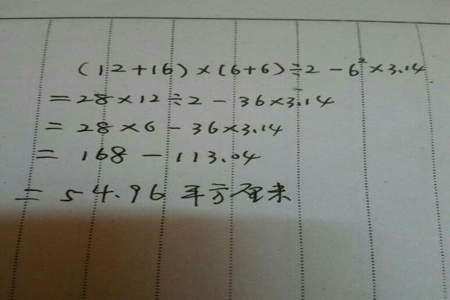 (12+16)×(6+6)÷2-6²×3.14
=28×12÷2-36×3.14
=28×6-36×3.14
=168-113.04
=54.96平方厘米